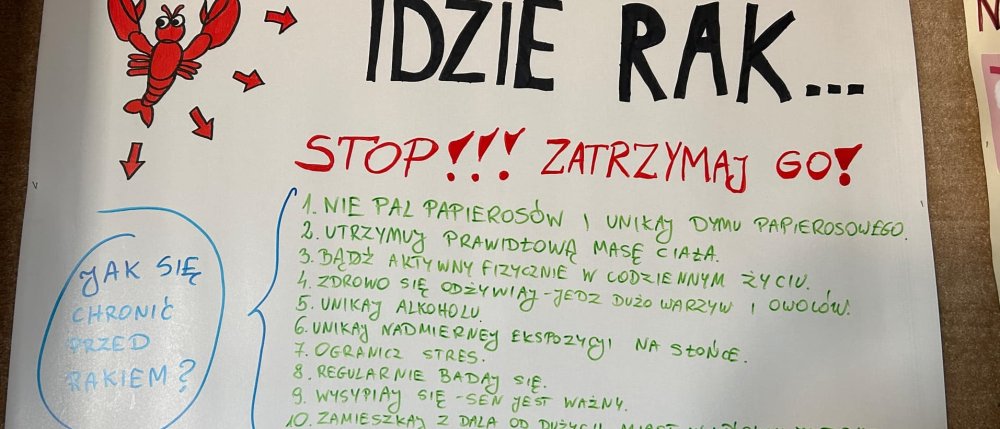 IDZIE RAK...
STOP!!! ZATRZYMAJ GO!
JAK SIĘ
CHRONIĆ
PRZED
RAKIEM?
1. NIE PAL PAPIEROSÓW I UNIKAJ DYMU PAPIEROSOWEGO.
2. UTRZYMUJ PRAWIDŁOWĄ MASĘ CIAŁA.
3. BĄDŹ AKTYWNY FIZYCZNIE W CODZIENNYM ŻYCIU.
4. ZDROWO SIĘ ODŻYWIAJ - JEDZ DUŻO WARZYW I OWOLÓW.
5. UNIKAJ ALKOHOLU.
6. UNIKAJ NADMIERNEJ EKSPOZYCJI NA SŁOŃCE.
7. OGRANICZ STRES.
8. REGULARNIE BADAJ SIĘ.
9. WYSYPIAJ SIĘ - SEN JEST WAŻNY.
10. ZAMIESZKAJ Z DALA OD DUŻYCH MIAST
N